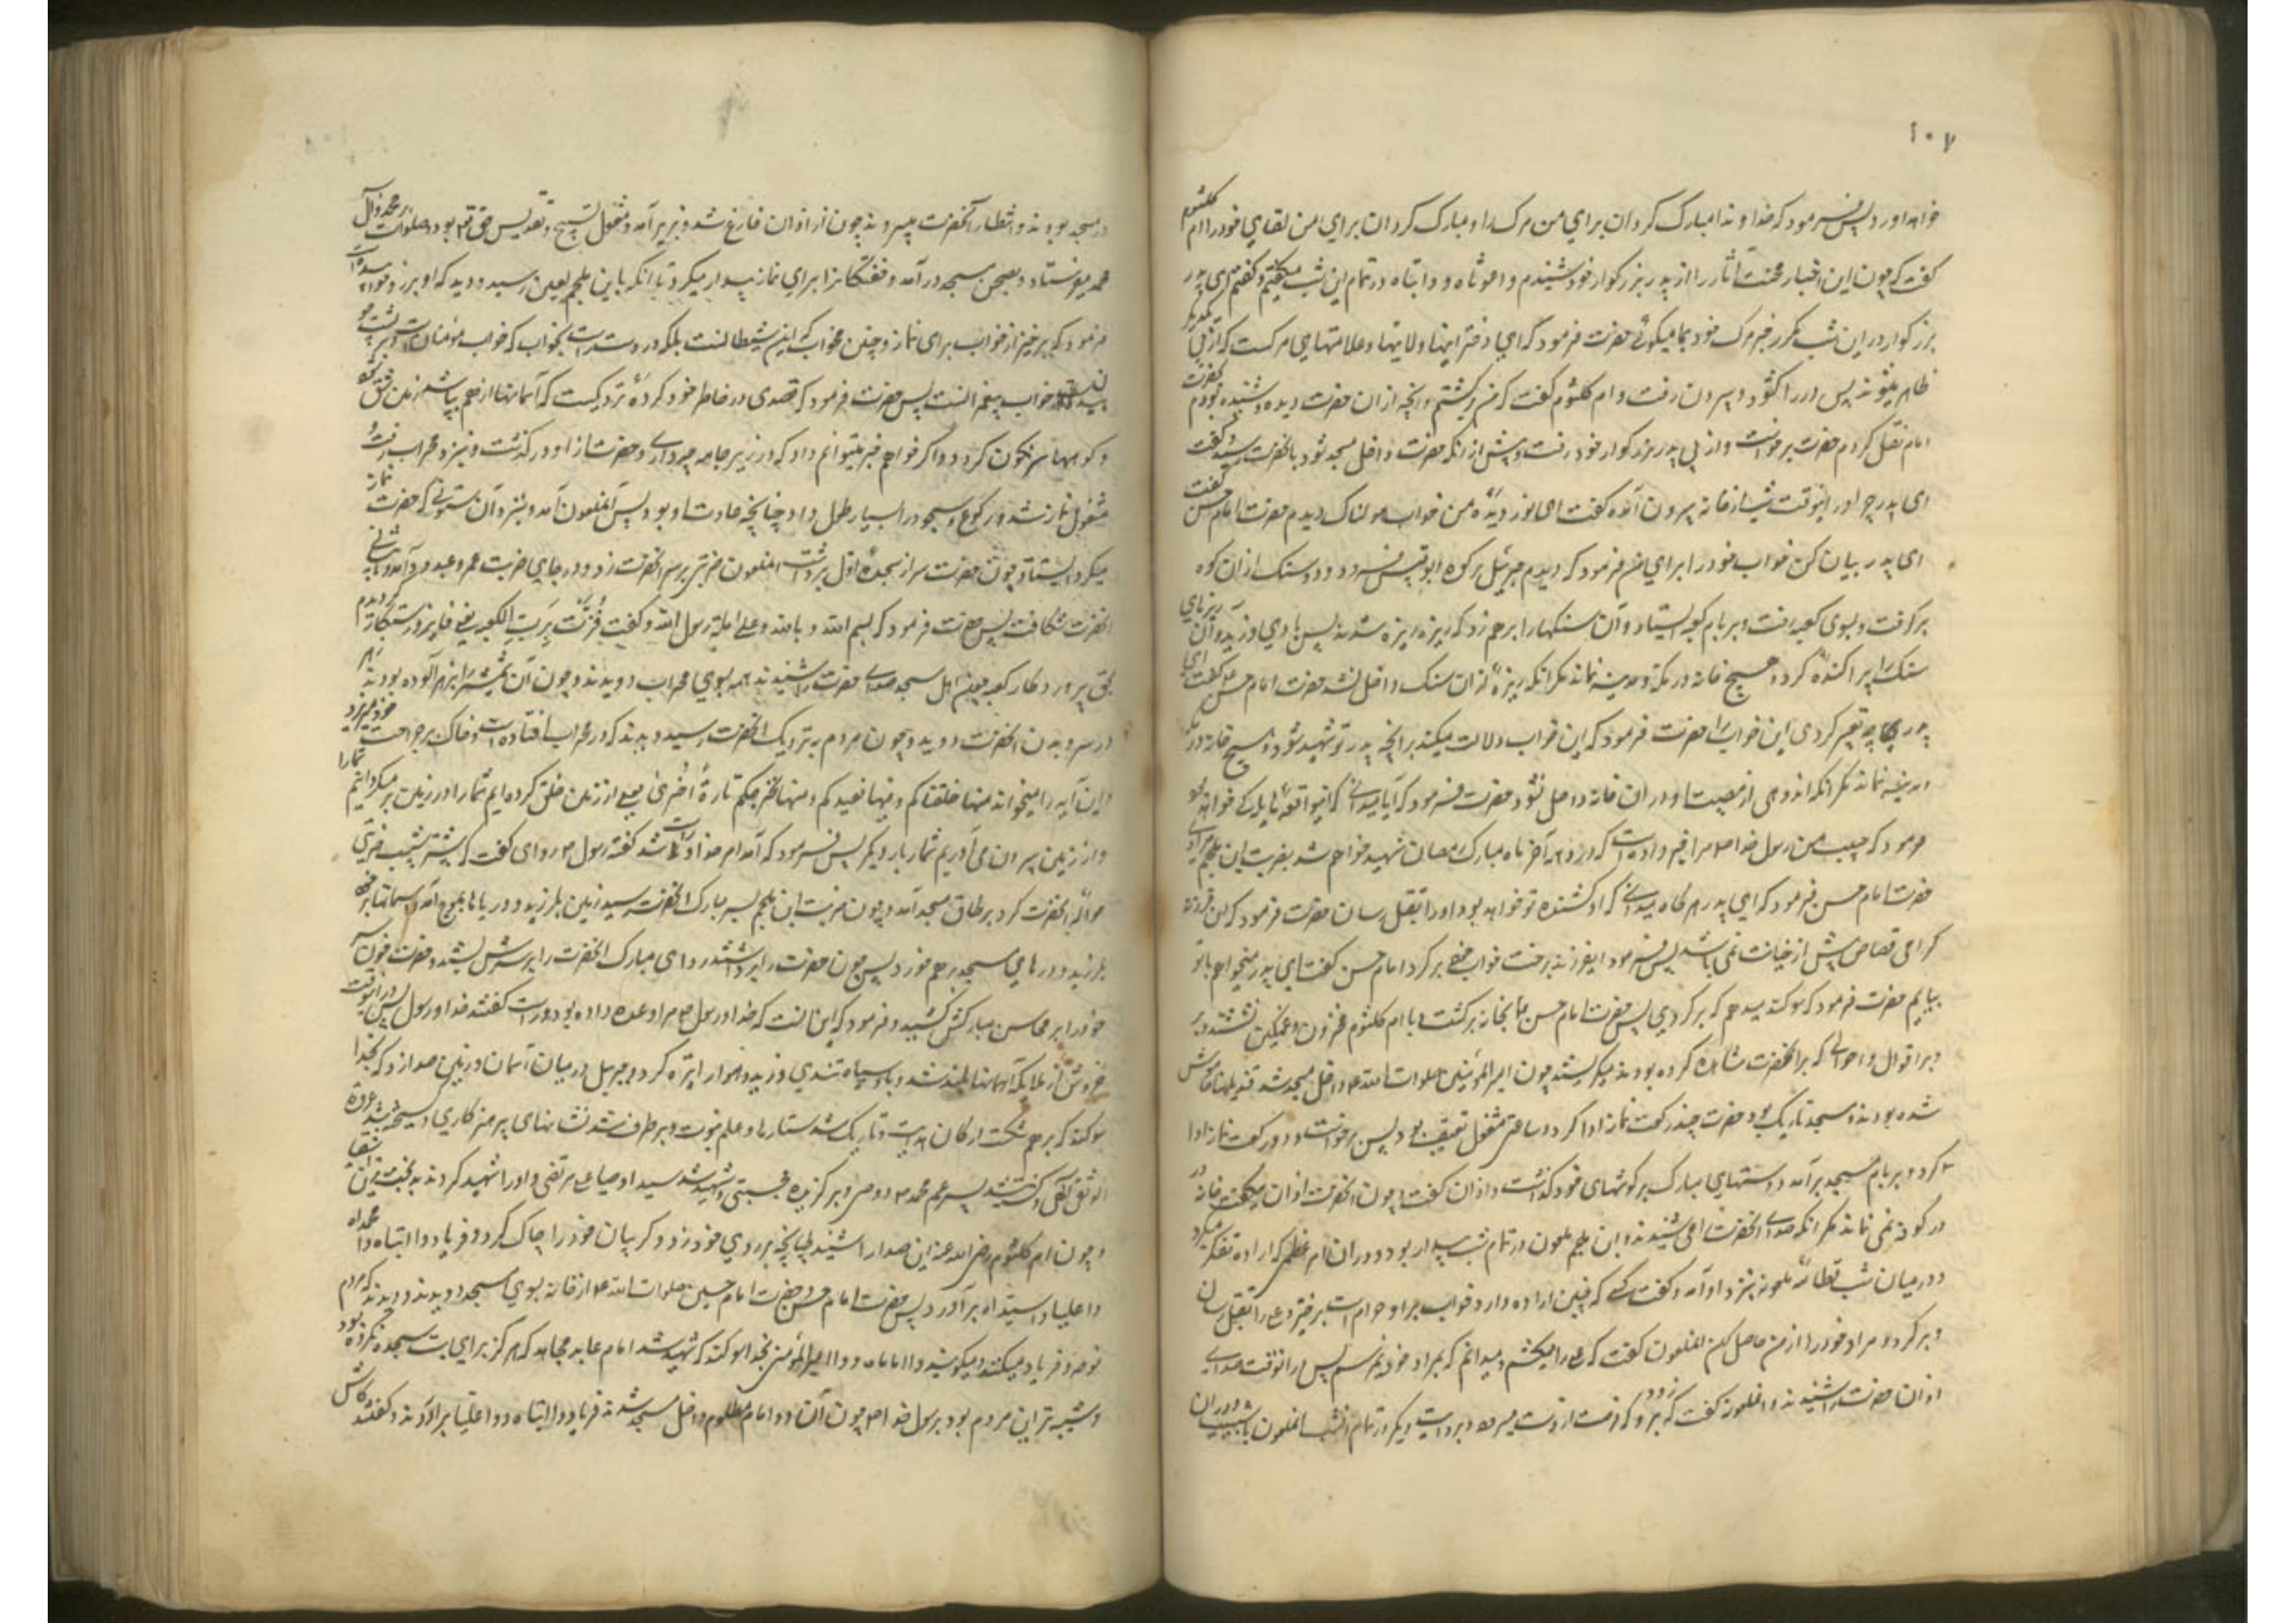 ۱۰۷
خواهد آورد پس فرمود که خداوندا مبارک گردان برای من مرک را و مبارک گردان برای من لقای خود را ام کلثوم
گفت که چون این اخبار محنت آثار را از پدر بزرکوار خود شنیدم واغوثاه و وا ابتاه در تمام این شب میگفتیم و گفتم ای پدر
بزرکوار در این شب مکرر خبر مرک خود بما میگوئی حضرت فرمود که ای دختر اینها ولایتها و علامتهای مرکست که از پی یکدیگر
ظاهر میشوند پس در را گشود و بیرون رفت و ام کلثوم گفت که من برگشتم و آنچه از آن حضرت دیده و شنیده بودم
امام نقل کردم حضرت برخواست و از پی پدر بزرکوار خود رفت و پیش از آنکه حضرت داخل مسجد شود بانحضرت رسید و گفت
ای پدر چرا در اینوقت شب از خانه بیرون آمده گفت ای نور دیده من خواب هولناک دیدم حضرت امام حسن گفت
ای پدر بیان کن خواب خود را برای من فرمود که دیدم جبرئیل بر کوه ابوقبیس فرود و دو سنک از ان کوه
برگرفت و بسوی کعبه رفت و بر بام کعبه ایستاد و آن سنکها را برهم زد که ریزه ریزه شدند پس بادی وزید و آن ریزهای
سنک را پراکنده کرد و هیچ خانه در مکه و مدینه نماند مکر آنکه ریزه از ان سنک داخل نشد حضرت امام حسن گفت ای
پدر چه تعبیر کردی این خواب را حضرت فرمود که این خواب دلالت میکند بر آنچه پدر تو شهید شود و هیچ خانه در مکه
و مدینه نماند مکر آنکه اندوهی از مصیبت او در ان خانه داخل نشود حضرت فرمود که آیا میدانی که اینواقعه هایله کی خواهد بود
فرمود که حبیب من رسول خدا ص مرا خبر داده است که در دهه آخر ماه مبارک رمضان شهید خواهم شد بضربت ابن ملجم مرادی
حضرت امام حسن فرمود که ای پدر هر کاه میدانی که او کشنده تو خواهد بود او را بقتل رسان حضرت فرمود که ای فرزند
کرامی قصاص پیش از خیانت نمی باشد پس فرمود ایفرزند برخت خواب خود برگرد امام حسن گفت ای پدر میخواهم با تو
بیایم حضرت فرمود که سوکند میدهم که برگردی پس حضرت امام حسن ع بخانه برگشت و با ام کلثوم محزون و غمگین نشستند
و بر اقوال و احوالی که بر انحضرت مشاهده کرده بودند میگریستند چون امیر المؤمنین صلوات الله ع داخل مسجد شد قندیلها خاموش
شده بودند و مسجد تاریک بود حضرت چند رکعت نماز ادا کرد و ساعتی مشغول تعقیب بود پس برخواست و دو رکعت نماز ادا
کرد و بر بام مسجد برآمد و دستهای مبارک بر گوشهای خود گذاشت و اذان گفت و چون انحضرت اذان میگفت خانه در
در کوفه نمی ماند مکر آنکه صدای انحضرت را می شنیدند و ابن ملجم ملعون در تمام شب بیدار بود و در ان امر عظیمی که اراده تفکر میکرد
در میان شب قطامه ملعونه بنزد او آمد و گفت کسی که چنین اراده دارد خواب بر او حرام است برخیز و علی را بقتل رسان
و برگرد و مراد خود را از من حاصل کن انملعون گفت که علی را میکشم و میدانم که بمراد خود نمیرسم پس در انوقت صدای
اذان حضرت را شنیدند و انملعونه گفت که زود برو که فرصت از دست میرود و بروایت دیگر در تمام آنشب انملعون با شبیب و وردان
در مسجد بودند و انتظار آنحضرت میبردند چون از اذان فارغ شد و بزیر آمد و مشغول تسبیح و تقدیس حق تع بود و صلوات بر محمد و آل
محمد میفرستاد و بصحن مسجد درآمد و خفتگانرا برای نماز بیدار میکرد تا آنکه باین ملجم لعین رسید و دید که او بر رو خوابیده است
فرمود که برخیز از خواب برای نماز و چنین مخواب که این شیطانست بلکه بر دست راست بخواب که خواب مؤمنان است و بر پشت
خواب پیغمبرانست پس حضرت فرمود که قصدی در خاطر خود کرده نزدیکست که آسمانها از هم بپاشد و زمین شق شود
و کوهها سرنکون کردد و اگر خواهم خبر میتوانم داد که در زیر جامه چه داری و حضرت از او در گذشت و بنزد محراب رفت
مشغول نماز شد و رکوع و سجود را بسیار طول داد چنانچه عادت او بود پس آنملعون آمد و بنزد آن ستونی که حضرت نماز
میکرد ایستاد چون حضرت سر از سجده اول برداشت انملعون ضربتی بر سر انحضرت زد و در جای ضربت عمرو عبدود آمد و تا پیشانی
انحضرت شکافت پس حضرت فرمود که بسم الله و بالله و علی ملة رسول الله و گفت فزت برب الکعبه یعنی فایز و رستگار گردیدم
بحق پروردکار کعبه چون اهل مسجد صدای حضرت را شنیدند همه بسوی محراب دویدند و چون آن شمشیر را بزهر آلوده بودند زهر
در سر و بدن انحضرت دوید و چون مردم بنزدیک انحضرت رسید دیدند که در محراب افتاده است و خاک بر جراحت خود میریزد
و این آیه را میخواند منها خلقناکم و فیها نعیدکم و منها نخرجکم تارة اخری یعنی از زمین خلق کرده ایم شما را و در زمین بر میگردانیم شما را
و از زمین بیرون می آوریم شما را بار دیگر پس فرمود که آمد امر خدا و راست شد گفته رسول ص راوی گفت که پیشتر شبیب ضربتی
حواله انحضرت کرد بر طاق مسجد آمد و چون ضربت ابن ملجم بسر مبارک انحضرت رسید زمین بلرزید و دریاها بموج آمد و آسمانها
بلرزید و درهای مسجد برهم خورد پس چون حضرت را برداشتند ردای مبارک انحضرت را بر سرش بستند و حضرت خون سر
خود را بر محاسن مبارکش کشید و فرمود که این انست که خدا و رسول ص مرا وعده داده بود و راست گفتند خدا و رسول پس در اینوقت
خروش از ملایکه آسمانها بلند شد و باد سیاه تندی وزید و هوا را تیره کرد و جبرئیل در میان آسمان و زمین صدا زد که بخدا
سوکند که برهم شکست ارکان هدایت و تاریک شد ستارهای علم نبوت و برطرف شد نشانهای پرهیزکاری و گسیخته شد عروة
الوثقی الهی و کشته شد پسر عم محمد ص و وصی و برگزیده مجتبی و شهید شد سید اوصیا علی مرتضی و او را شهید کردند بدبخت ترین اشقیا
و چون ام کلثوم رضی الله عنه این صدا را شنید طپانچه بر روی خود زد و گریبان خود را چاک کرد و فریاد وا ابتاه وا محمداه
وا علیا واسیداه برآورد پس حضرت امام حسن و حضرت امام حسین صلوات الله ع از خانه بسوی مسجد دویدند و دیدند که مردم
نوحه و فریاد میکنند و میگویند وا اماماه و وا امیرالمؤمنین بخدا سوکند که شهید شد امام عابد مجاهد که هرگز برای بت سجده نکرده بود
و شبیه ترین مردم بود برسول خدا ص چون آن دو امام مظلوم داخل مسجد شدند فریاد وا ابتاه و وا علیا برآوردند و گفتند کاش